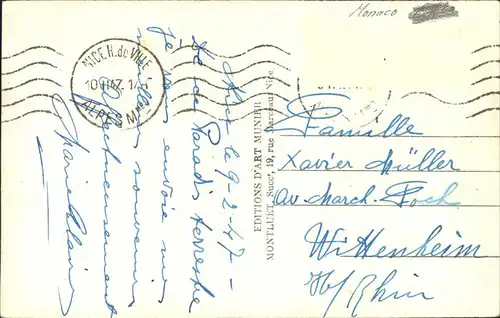 Monaco
NICE H. de VILLE
ALPES Mmes
Nice le 9-2-47-
De ce Paradis terrestre
je vous envoie mes
meilleurs souvenirs
Affectueusement
EDITIONS D'ART MUNIER
MONTLUET, Succr, 19, rue Marceau, Nice
Famille
Xavier Müller
Av. March. Foch
Wittenheim
Ht/Rhin